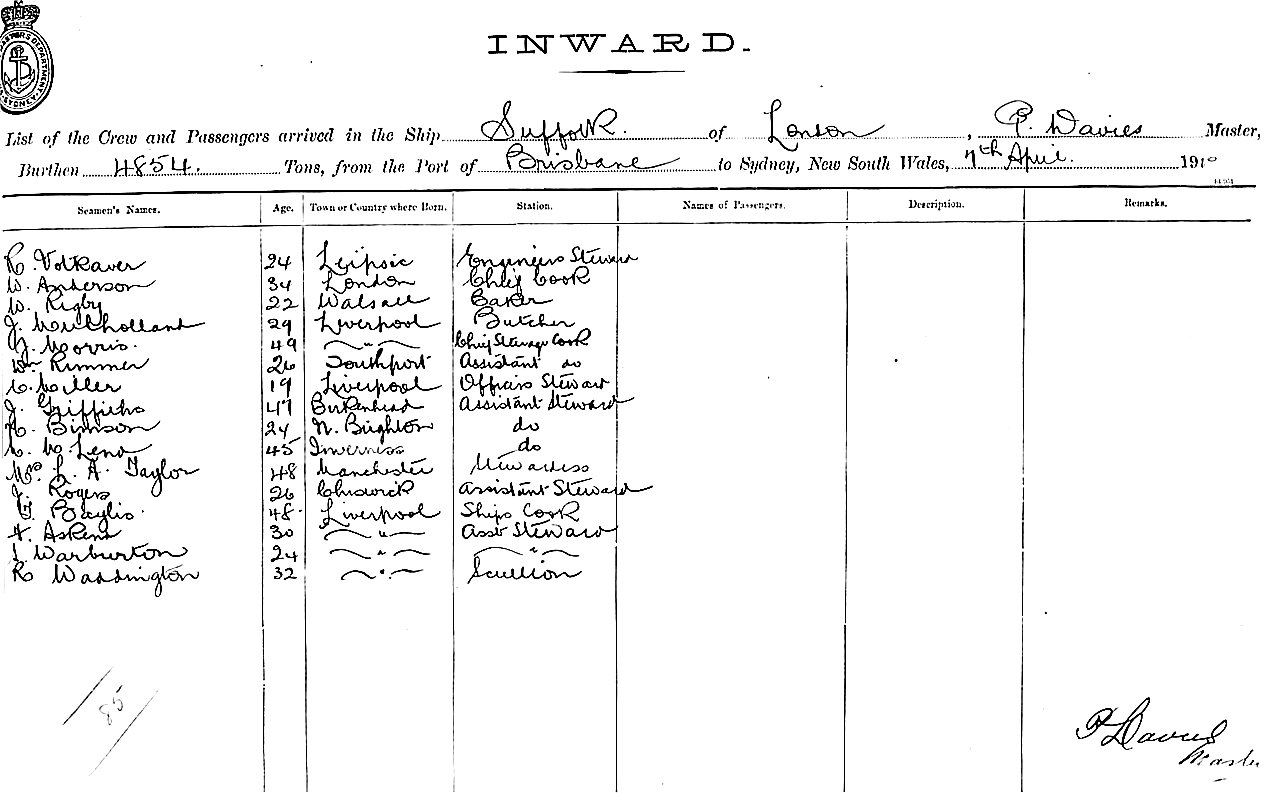 INWARD.
List of the Crew and Passengers arrived in the Ship Suffolk. of London, P. Davies Master,
Burthen 4854. Tons, from the Port of Brisbane to Sydney, New South Wales, 7th April. 1910
Seamen's Names. Age. Town or Country where Born. Station. Names of Passengers. Description. Remarks.
R. Volkaver 24 Leipsic Engineers Steward
W. Anderson 34 London Chief Cook
W. Rigby 22 Walsall Baker
J. Mulholland 29 Liverpool Butcher
J. Morris. 49 " Chief Steerage Cook
Wm Rimmer 26 Southport Assistant do
C. Miller 19 Liverpool Officers Steward
J. Griffiths 47 Birkenhead Assistant Steward
H. Bimson 24 N. Brighton do
45 Inverness do
Mrs L. A. Taylor 48 Manchester Stewardess
J. Rogers 26 Chiswick Assistant Steward
G. Baylis. 48 Liverpool Ships Cook
30 " Asst Steward
Warburton 24 " "
R Waddington 32 " Scullion
85
P Davies
Master